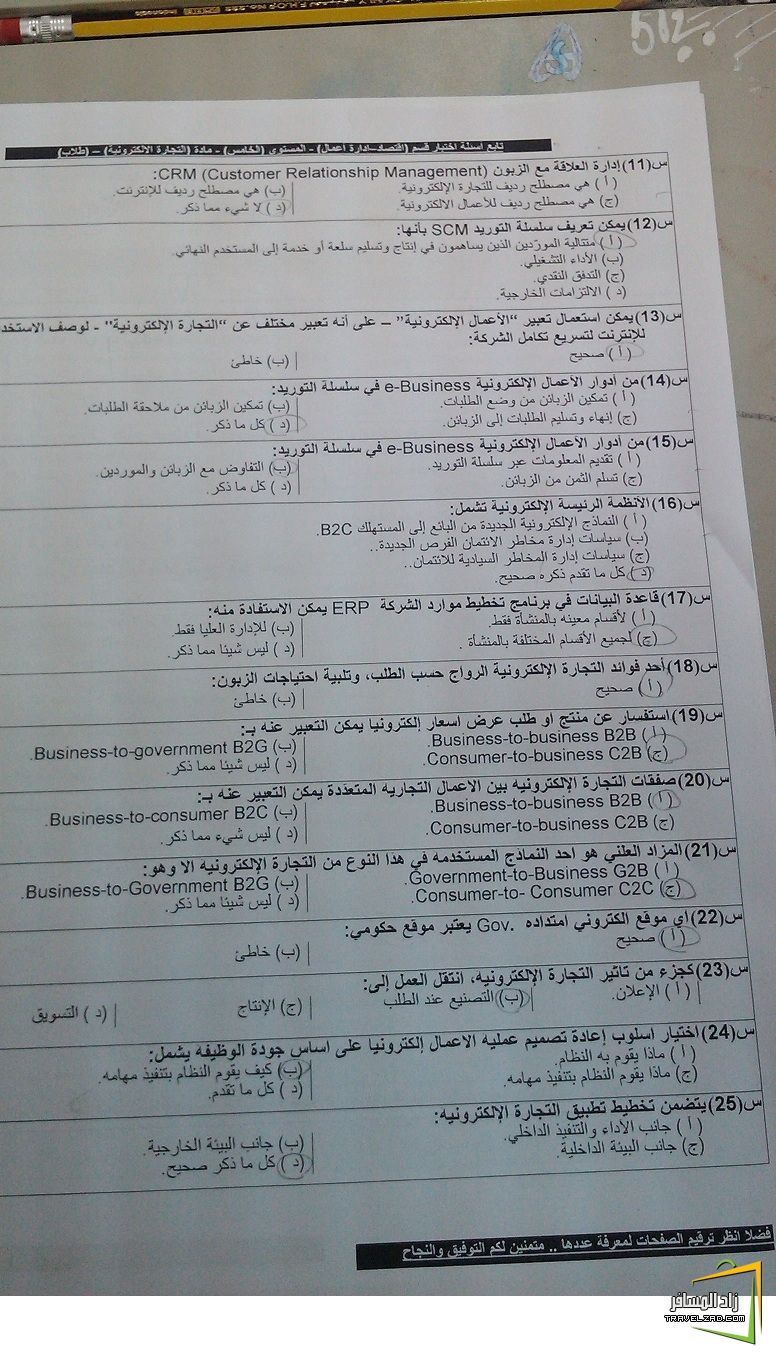 تابع أسئلة اختبار قسم (اقتصاد-إدارة أعمال) - المستوى (الخامس) - مادة (التجارة الالكترونية) - (طلاب)
س(11) إدارة العلاقة مع الزبون CRM (Customer Relationship Management):
( أ ) هي مصطلح رديف للتجارة الإلكترونية. (ب) هي مصطلح رديف للإنترنت.
(ج) هي مصطلح رديف للأعمال الالكترونية. ( د ) لا شيء مما ذكر.
س(12) يمكن تعريف سلسلة التوريد SCM بأنها:
( أ ) متتالية المورّدين الذين يساهمون في إنتاج وتسليم سلعة أو خدمة إلى المستخدم النهائي.
(ب) الأداء التشغيلي.
(ج) التدفق النقدي.
( د ) الالتزامات الخارجية.
س(13) يمكن استعمال تعبير "الأعمال الإلكترونية" – على أنه تعبير مختلف عن "التجارة الإلكترونية" - لوصف
للإنترنت لتسريع تكامل الشركة:
( أ ) صحيح (ب) خاطئ
س(14) من أدوار الأعمال الإلكترونية e-Business في سلسلة التوريد:
( أ ) تمكين الزبائن من وضع الطلبات. (ب) تمكين الزبائن من ملاحقة الطلبات.
(ج) إنهاء وتسليم الطلبات إلى الزبائن. ( د ) كل ما ذكر.
س(15) من أدوار الأعمال الإلكترونية e-Business في سلسلة التوريد:
( أ ) تقديم المعلومات عبر سلسلة التوريد. (ب) التفاوض مع الزبائن والموردين.
(ج) تسلم الثمن من الزبائن. ( د ) كل ما ذكر.
س(16) الأنظمة الرئيسة الإلكترونية تشمل:
( أ ) النماذج الإلكترونية الجديدة من البائع إلى المستهلك B2C.
(ب) سياسات إدارة مخاطر الائتمان الفرص الجديدة..
(ج) سياسات إدارة المخاطر السيادية للائتمان..
( د ) كل ما تقدم ذكره صحيح.
س(17) قاعدة البيانات في برنامج تخطيط موارد الشركة ERP يمكن الاستفادة منه:
( أ ) لأقسام معينه بالمنشأة فقط. (ب) للإدارة العليا فقط.
(ج) لجميع الأقسام المختلفة بالمنشأة . ( د ) ليس شيئا مما ذكر.
س(18) أحد فوائد التجارة الإلكترونية الرواج حسب الطلب، وتلبية احتياجات الزبون:
( أ ) صحيح (ب) خاطئ
س(19) استفسار عن منتج أو طلب عرض أسعار إلكترونيا يمكن التعبير عنه بـ:
( أ ) Business-to-business B2B. (ب) Business-to-government B2G.
(ج) Consumer-to-business C2B. ( د ) ليس شيئا مما ذكر.
س(20) صفقات التجارة الإلكترونيه بين الاعمال التجاريه المتعددة يمكن التعبير عنه بـ:
( أ ) Business-to-business B2B. (ب) Business-to-consumer B2C.
(ج) Consumer-to-business C2B. ( د ) ليس شيء مما ذكر.
س(21) المزاد العلني هو احد النماذج المستخدمه في هذا النوع من التجارة الإلكترونيه الا وهو:
( أ ) Government-to-Business G2B. (ب) Business-to-Government B2G.
(ج) Consumer-to- Consumer C2C. ( د ) ليس شيئا مما ذكر.
س(22) أي موقع الكتروني امتداده .Gov يعتبر موقع حكومي:
( أ ) صحيح (ب) خاطئ
س(23) كجزء من تاثير التجارة الإلكترونيه، انتقل العمل إلى:
( أ ) الإعلان. (ب) التصنيع عند الطلب (ج) الإنتاج ( د ) التسويق
س(24) اختيار اسلوب إعادة تصميم عمليه الاعمال إلكترونيا على اساس جودة الوظيفه يشمل:
( أ ) ماذا يقوم به النظام. (ب) كيف يقوم النظام بتنفيذ مهامه.
(ج) ماذا يقوم النظام بتنفيذ مهامه. ( د ) كل ما تقدم.
س(25) يتضمن تخطيط تطبيق التجارة الإلكترونيه:
( أ ) جانب الاداء والتنفيذ الداخلي. (ب) جانب البيئة الخارجية.
(ج) جانب البيئة الداخلية. ( د ) كل ما ذكر صحيح.
فضلا انظر ترقيم الصفحات لمعرفة عددها .. متمنين لكم التوفيق والنجاح
زاد المسافر
TRAVELZAD.COM